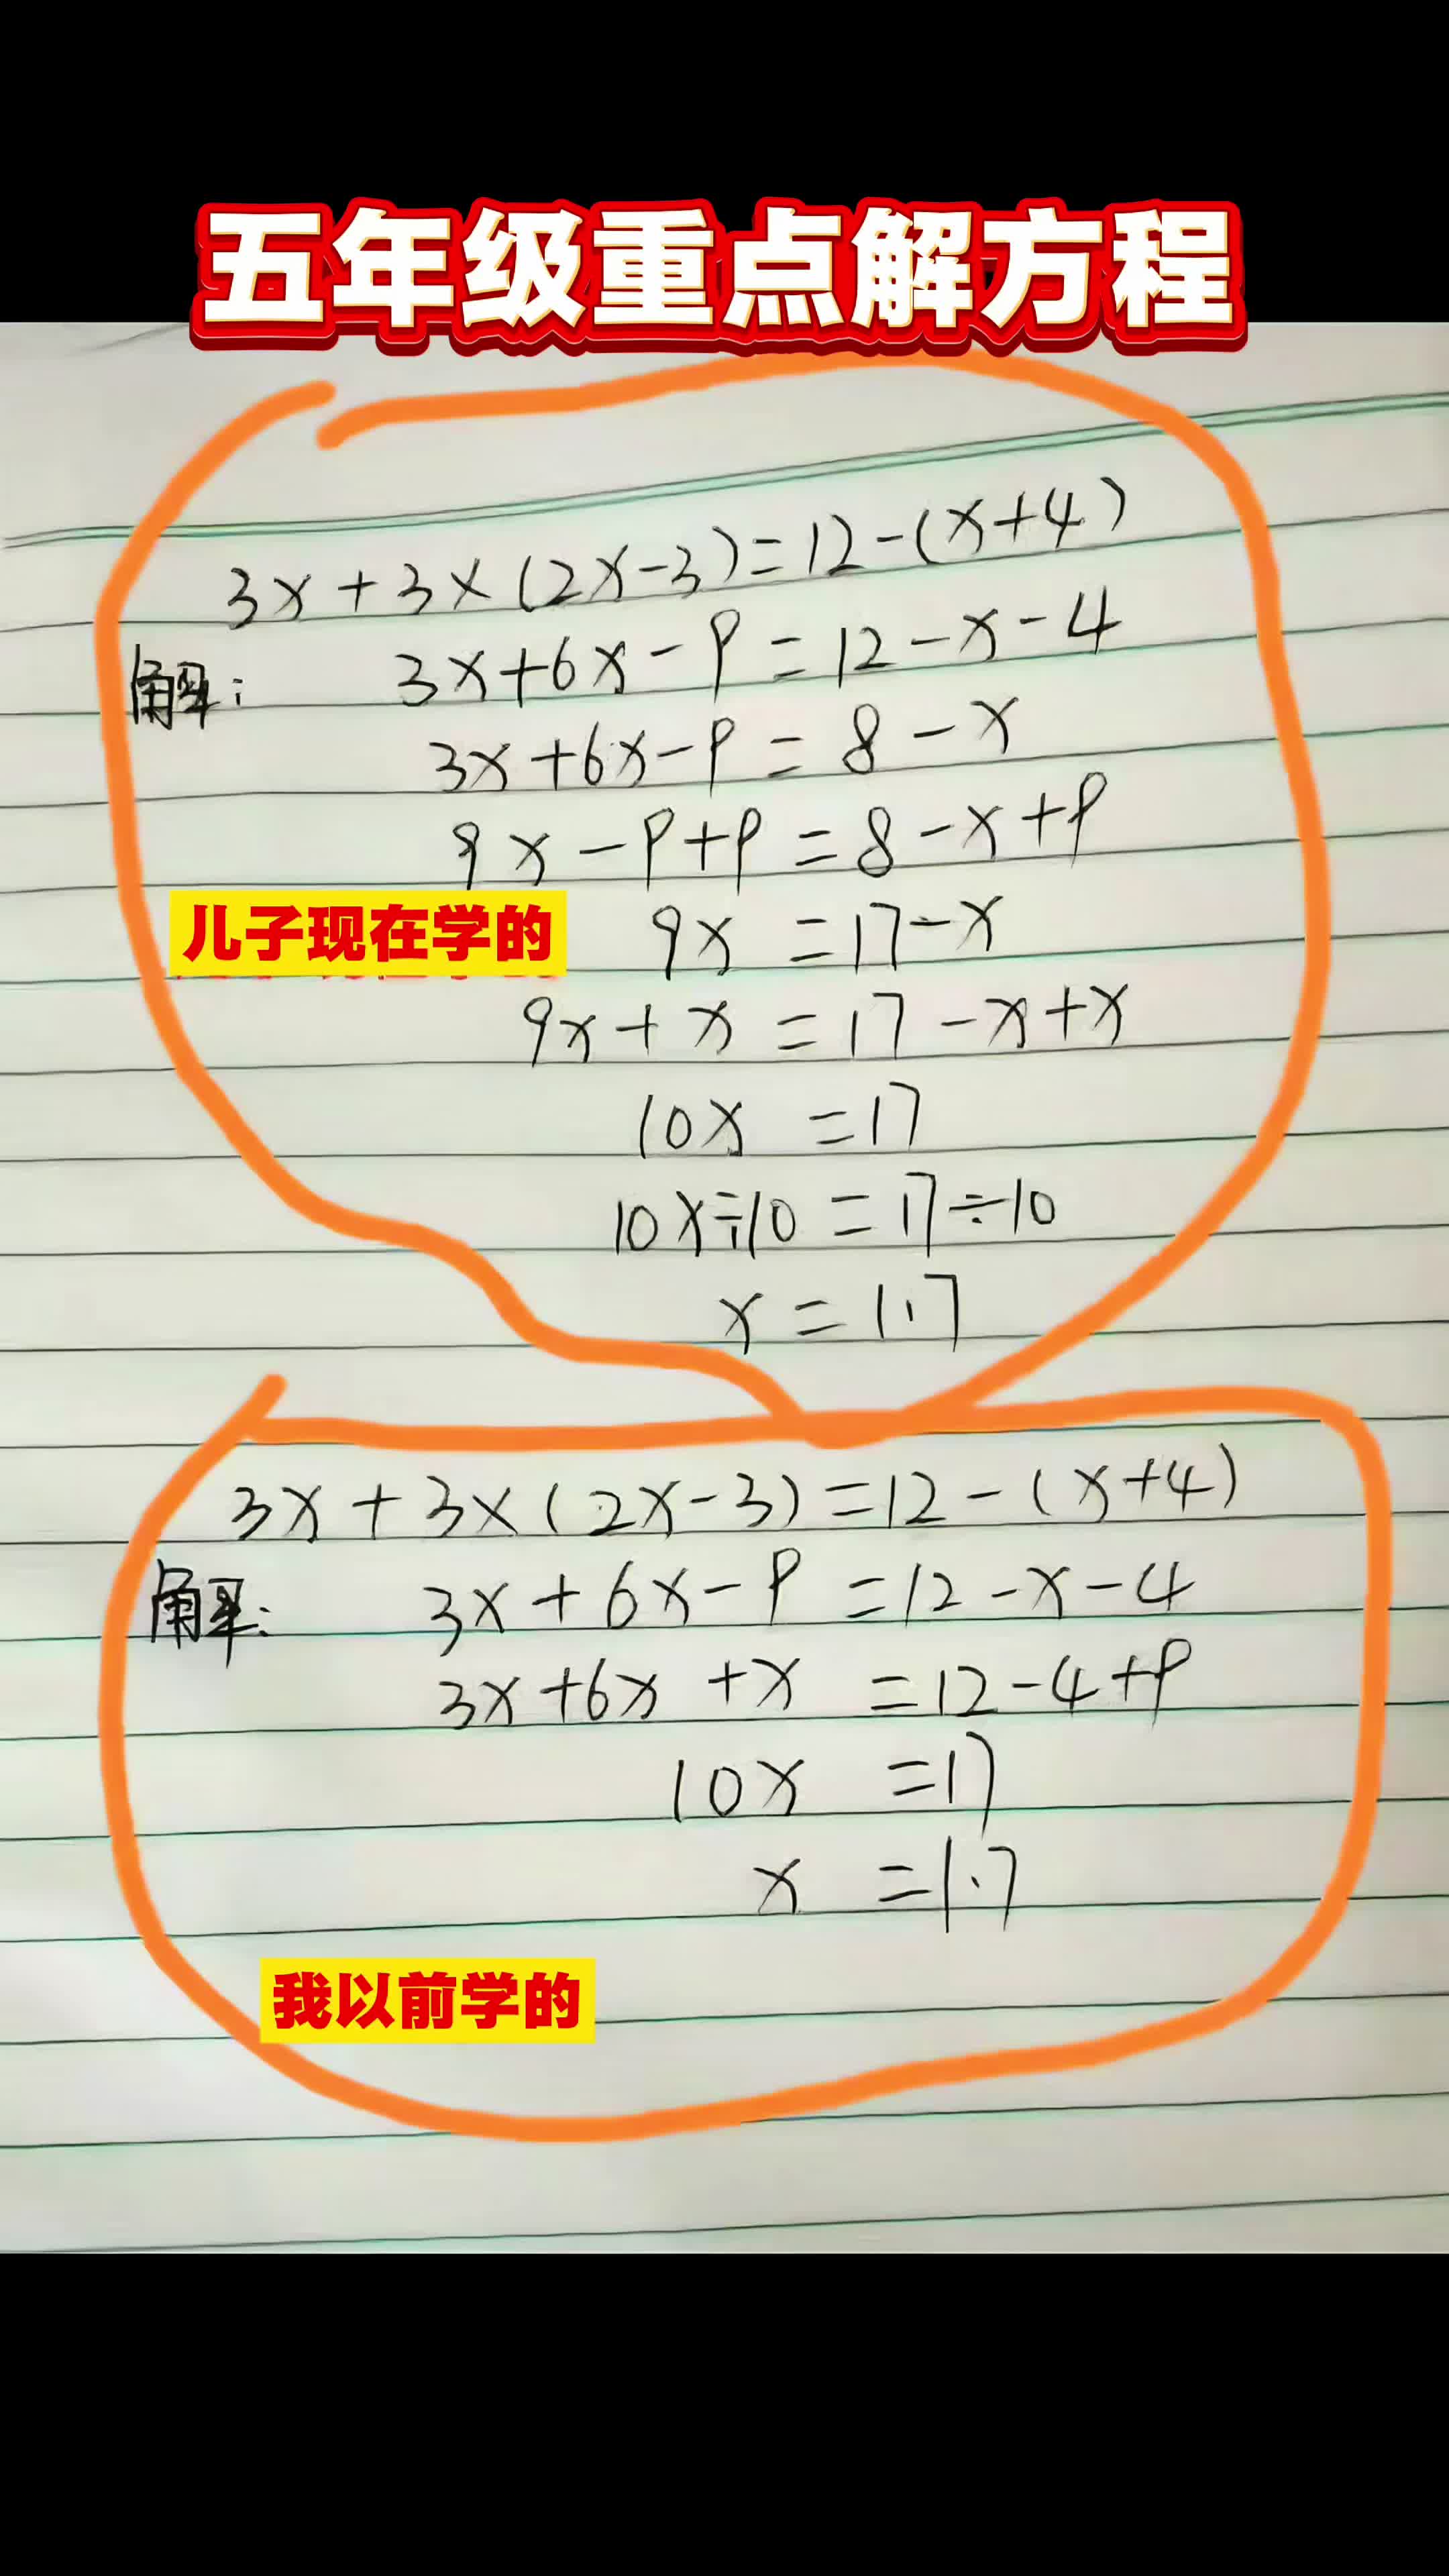 五年级重点解方程
3x+3×(2x-3)=12-(x+4)
解: 3x+6x-9=12-x-4
3x+6x-9=8-x
9x-9+9=8-x+9
儿子现在学的 9x=17-x
9x+x=17-x+x
10x=17
10x÷10=17÷10
x=1.7
3x+3×(2x-3)=12-(x+4)
解: 3x+6x-9=12-x-4
3x+6x+x=12-4+9
10x=17
x=1.7
我以前学的